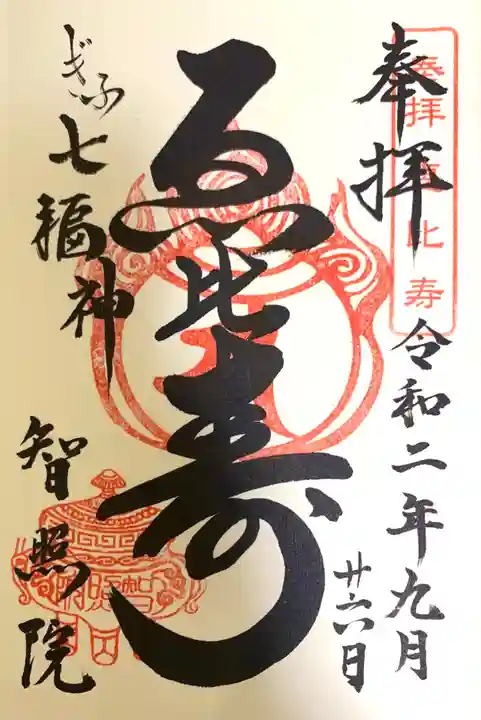 奉拝
令和二年九月
廿六日
奉拝 恵比寿
恵比寿
ぎふ七福神
智照院